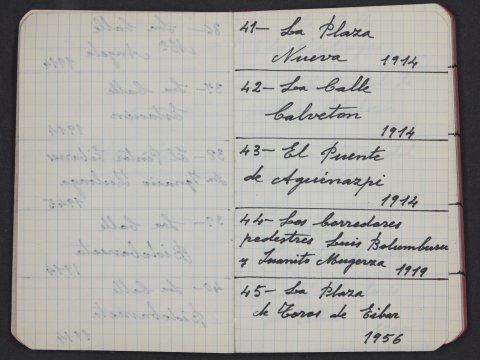 41- La Plaza
Nueva 1914
42- La Calle
Calveton
1914
43- El Puente
de Aguinazpi
1914
44- Los Corredores
pedestres Luis Bolumburu
y Juanito Mugerza 1919
45- La Plaza
de Toros de Eibar
1956